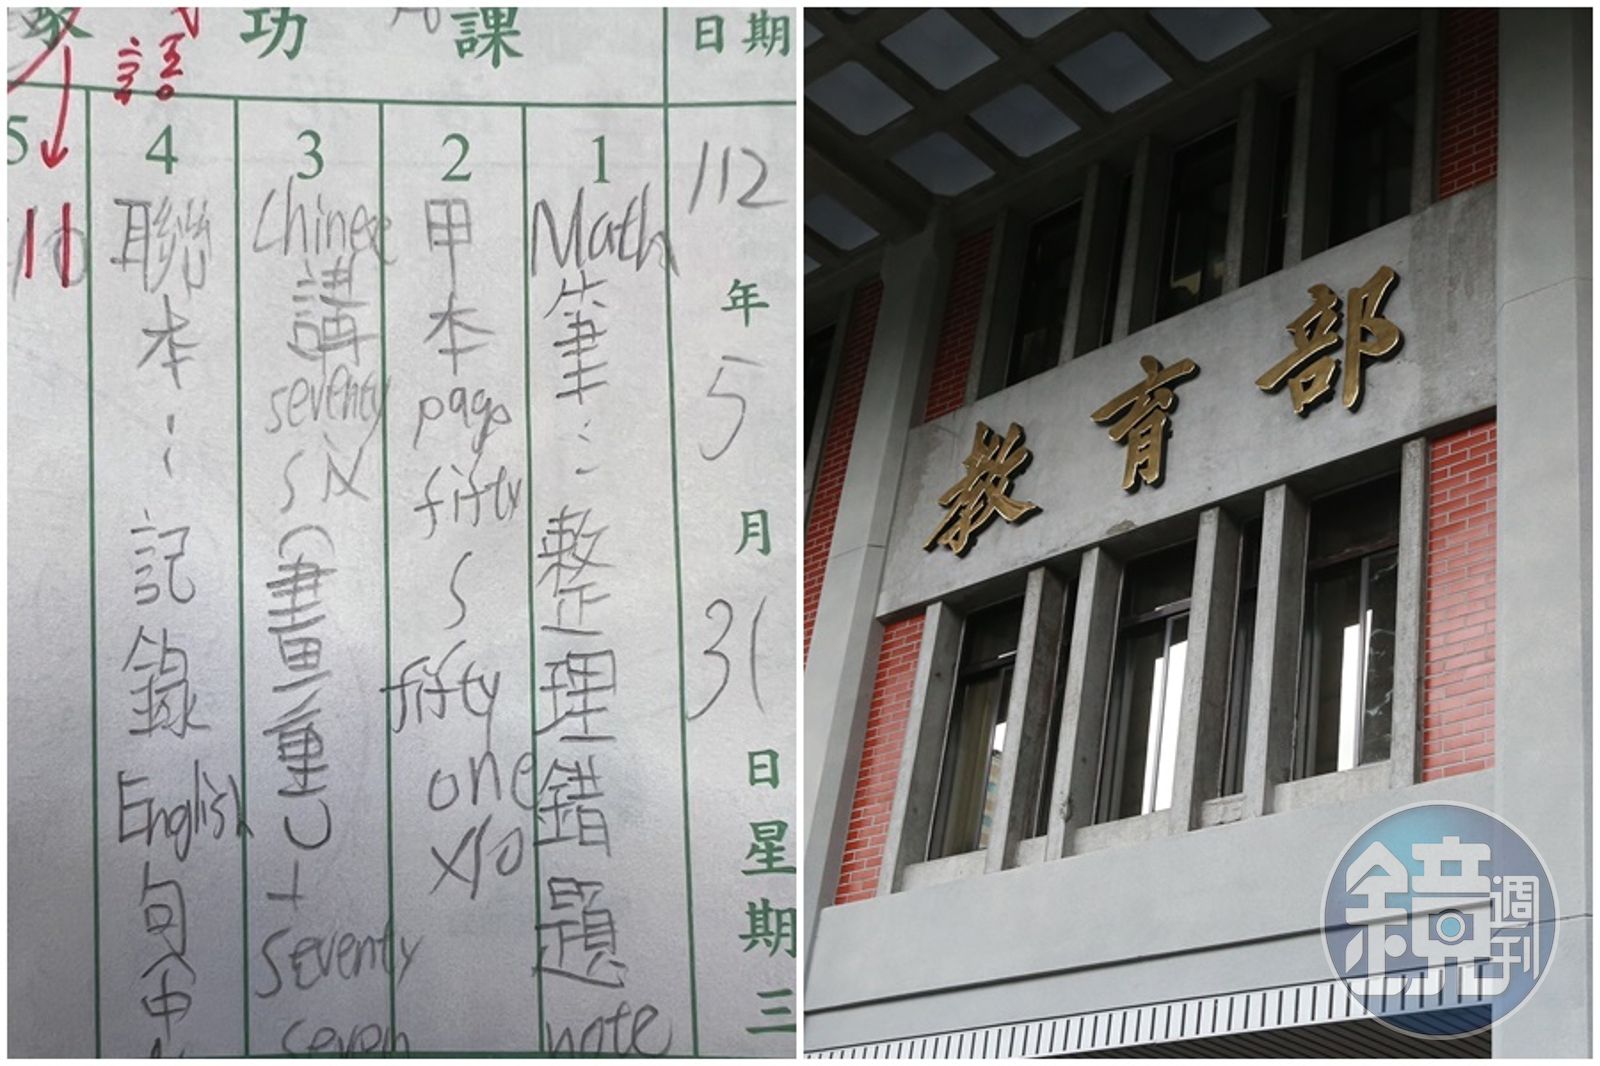 日期
112
年
5
月
31
日星期三
課
功
家
1
Math筆：整理錯題note
2
甲本page fifty ~ fifty one x10
3
Chinese講seventy six（畫重）+ seventy seven
4
聯本：記錄English句中
語
5
11
教育部
鏡週刊